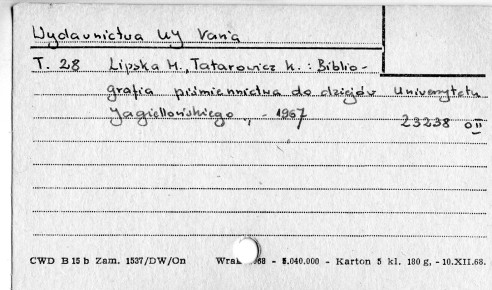 Wydawnictwa UJ Varia
T. 28 Lipska H., Tatarowicz K. : Biblio-
grafia piśmiennictwa do dziejów Uniwersytetu
Jagiellońskiego, - 1967 23238 OII
CWD B 15 b Zam. 1537/DW/On 68 - 5.040.000 - Karton 5 kl. 180 g, - 10.XII.68.